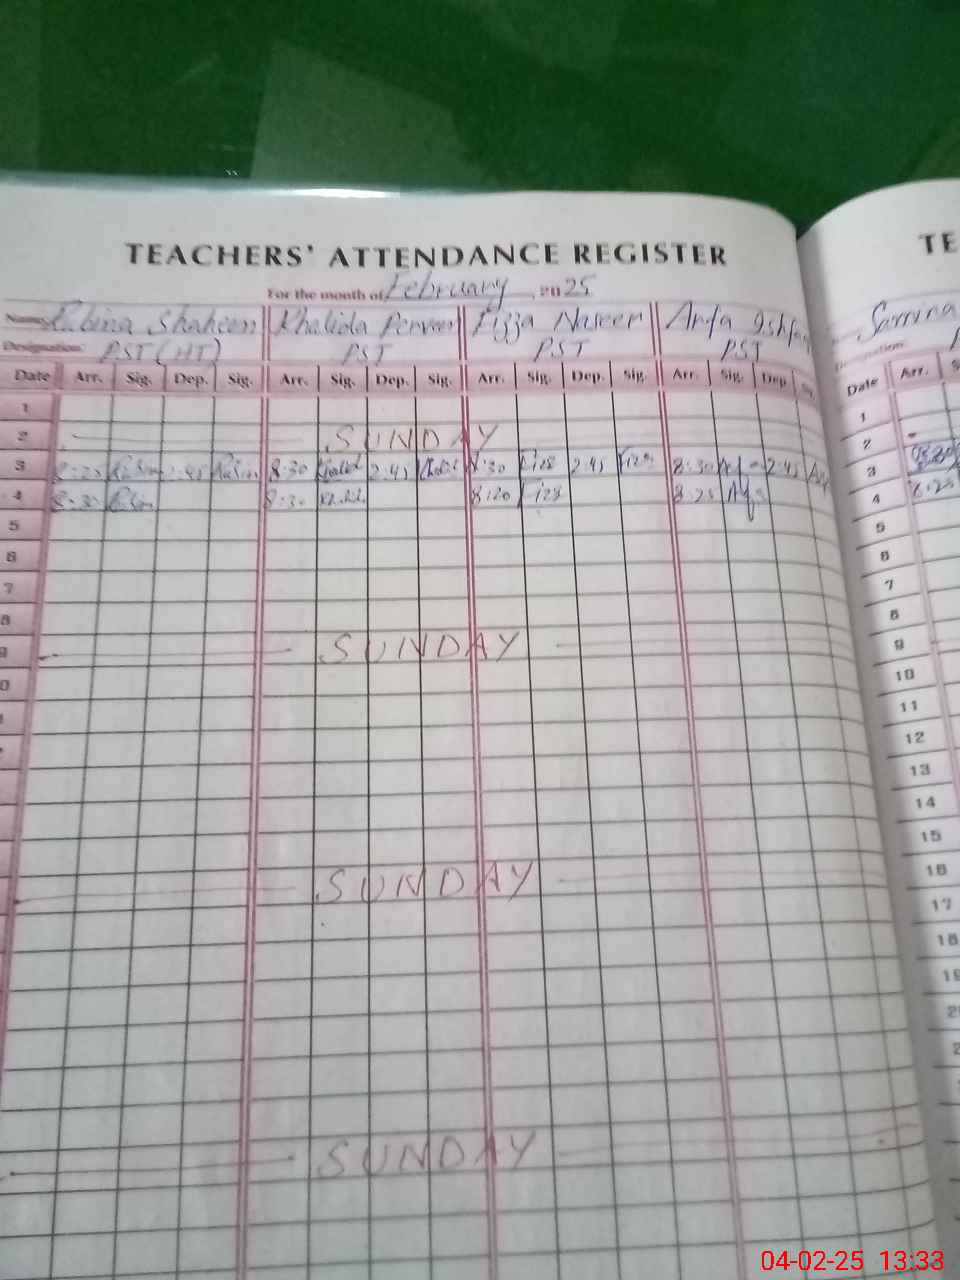 TEACHERS' ATTENDANCE REGISTER
TE
For the month of February, 2025
Name: Rubina Shaheen Khalida Perveen Fizza Naseer Arifa Samina
Designation: PST (HT) PST PST PST Designation:
Date Arr. Sig. Dep. Sig. Arr. Sig. Dep. Sig. Arr. Sig. Dep. Sig. Arr. Sig. Dep. Date Arr.
1 1
2 SUNDAY 2
3 8:25 2:45 8:30 2:45 8:30 2:45 8:30 2:45 3
4 8:30 8:30 8:20 8:25 4 8:25
5 5
6 6
7 7
8 8
9 SUNDAY 9
10
11
12
13
14
15
SUNDAY 16
17
18
19
SUNDAY
04-02-25 13:33